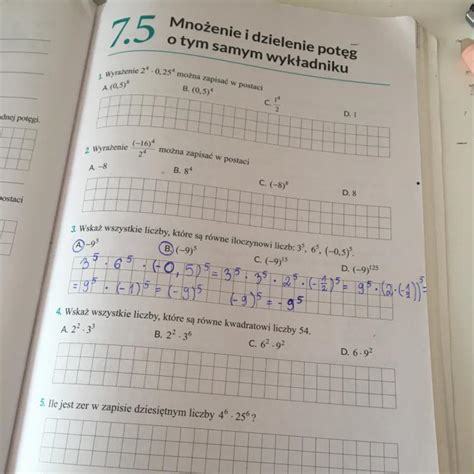 7.5 Mnożenie i dzielenie potęg
o tym samym wykładniku
1. Wyrażenie 2⁴ · 0,25⁴ można zapisać w postaci
A. (0,5)⁸ B. (0,5)⁴ C. 1⁴/2 D. 1
2. Wyrażenie (−16)⁴/2⁴ można zapisać w postaci
A. −8 B. 8⁴ C. (−8)⁸ D. 8
3. Wskaż wszystkie liczby, które są równe iloczynowi liczb: 3⁵, 6⁵, (−0,5)⁵.
A. −9⁵ B. (−9)⁵ C. (−9)¹⁵ D. (−9)¹²⁵
3⁵ · 6⁵ · (−0,5)⁵ = 3⁵ · 3⁵ · 2⁵ · (−1/2)⁵ = 9⁵ · (2 · (−1/2))⁵ =
= 9⁵ · (−1)⁵ = (−9)⁵ (−9)⁵ = −9⁵
4. Wskaż wszystkie liczby, które są równe kwadratowi liczby 54.
A. 2² · 3³ B. 2² · 3⁶ C. 6² · 9² D. 6 · 9²
5. Ile jest zer w zapisie dziesiętnym liczby 4⁶ · 25⁶?
dnej potęgi.
postaci